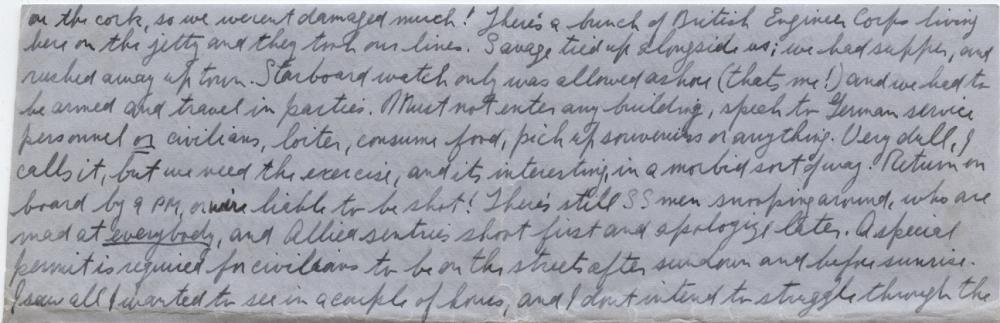 on the cork, so we weren't damaged much! There's a bunch of British Engineer Corps living
here on the jetty and they took our lines. Savage tied up alongside us; we had supper, and
rushed away up town. Starboard watch only was allowed ashore (thats me!) and we had to
be armed and travel in parties. Must not enter any building, speak to German service
personnel or civilians, loiter, consume food, pick up souvenirs or anything. Very dull, I
calls it, but we need the exercise, and its interesting in a morbid sort of way. Return on
board by 9 PM, or we're liable to be shot! There's still SS men snooping around, who are
mad at everybody, and Allied sentries shoot first and apologize later. A special
permit is required for civilians to be on the streets after sundown and before sunrise.
I saw all I wanted to see in a couple of hours, and I don't intend to struggle through the